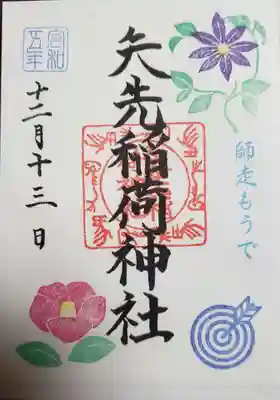 師走もうで
矢先稲荷神社
令和
五年
十二月十三日